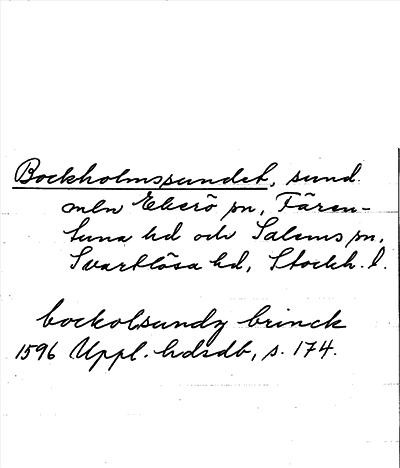 Bockholmssundet, sund
mln Ekerö sn, Fären-
tuna hd och Salems sn,
Svartlösa hd, Stockh. l.
bockolsundz brinck
1596 Uppl. hdsdb, s. 174.